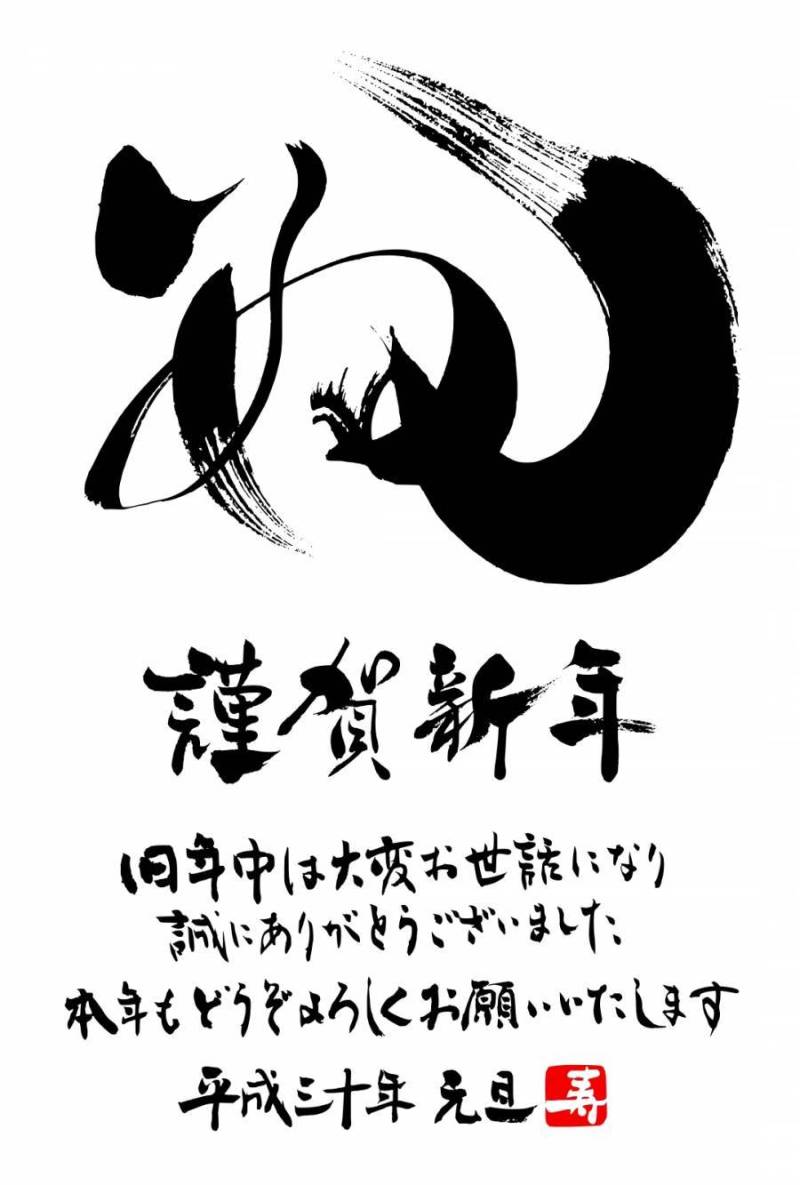 謹賀新年
旧年中は大変お世話になり
誠にありがとうございました
本年もどうぞよろしくお願いいたします
平成三十年 元旦 寿